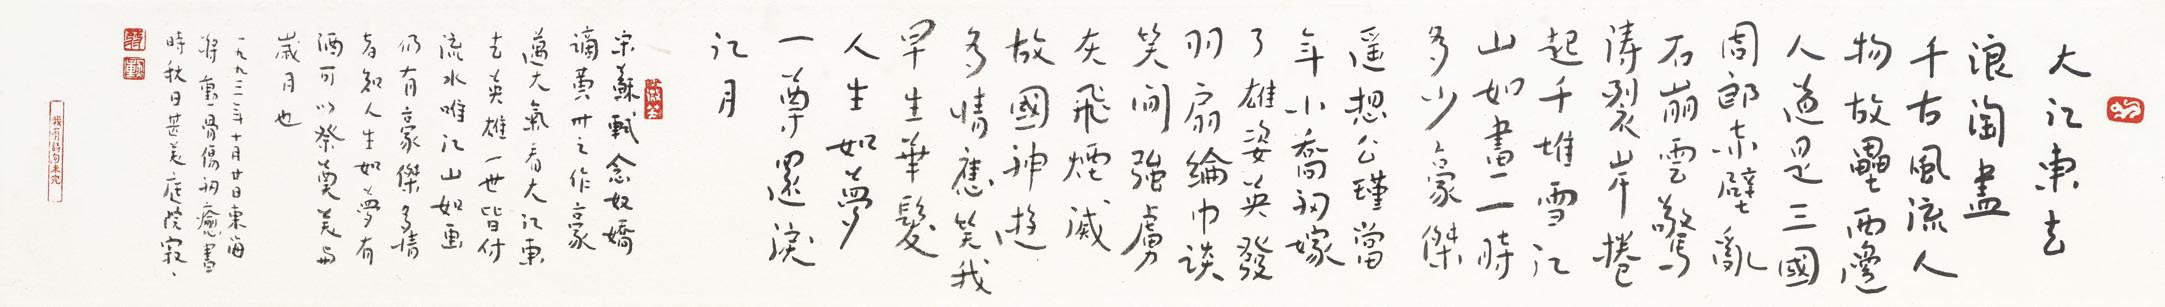 大江東去
浪淘盡
千古風流人
物故壘西邊
人道是三國
周郎赤壁亂
石崩雲驚
濤裂岸捲
起千堆雪江
山如畫一時
多少豪傑
遙想公瑾當
年小喬初嫁
了雄姿英發
羽扇綸巾談
笑間強虜
灰飛煙滅
故國神遊
多情應笑我
早生華髮
人生如夢
一尊還淚
江月
宋蘇軾念奴嬌
謫黃州之作豪
邁大氣看大江東
去英雄一世皆付
流水唯江山如畫
仍有豪傑多情
者知人生如夢有
酒可以祭奠美與
歲月也
一九九三年十月廿日東海
將軍骨傷初癒書
時秋日甚美庭院寂、
我有詩句未完